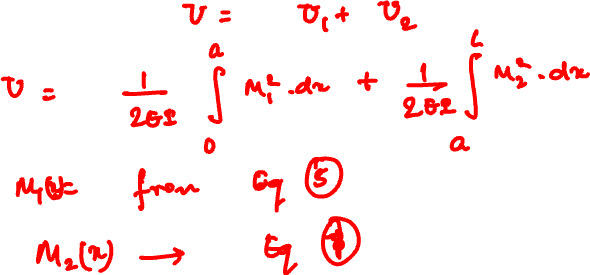 U = U₁ + U₂
U = 1/2EI ∫₀ᵃ M₁² . dx + 1/2EI ∫ₐᴸ M₂² . dx
M₁ = from Eq ⑤
M₂(x) → Eq